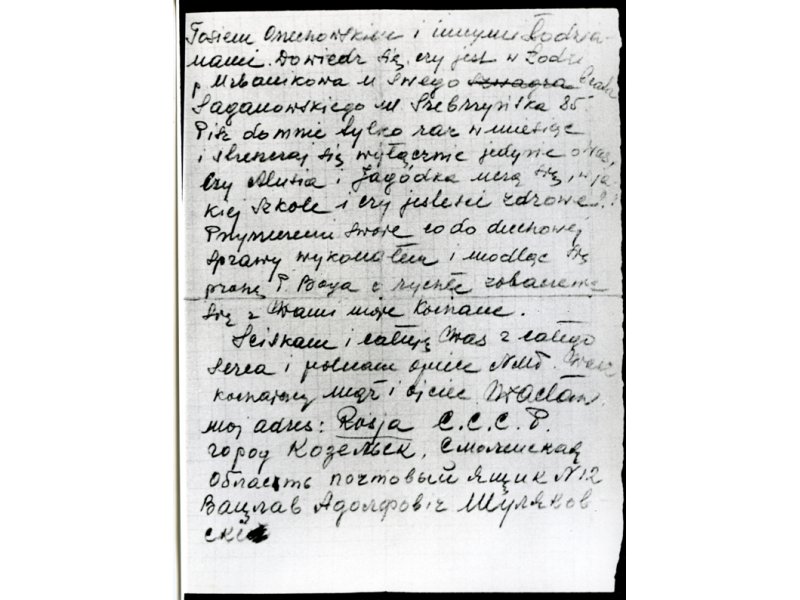 Tosiem Orzechowskim i innymi Łodzia-
nami. Dowiedz się, czy jest w Łodzi
p. Urbanikowa u swego szwagra brata
Saganowskiego ul Srebrzyńska 85
Pisz do mnie tylko raz w miesiąc
i streszczaj się wyłącznie jedynie o Was,
czy Alusia i Jagódka uczą się, w ja-
kiej szkole i czy jesteście zdrowe?!
Przyrzeczenie swoje co do duchowej
sprawy wykonałem i modląc się
proszę P. Boga o rychłe zobaczenie
się z Wami moje Kochane.
Ściskam i całuję Was z całego
serca i polecam opiece NMP. Wasz
kochający mąż i ojciec Wacław.
mój adres: Rosja С.С.С.Р.
город Козельск, Смоленская
область почтовый ящик N 12
Вацлав Адолфовіч Шуляков
скій